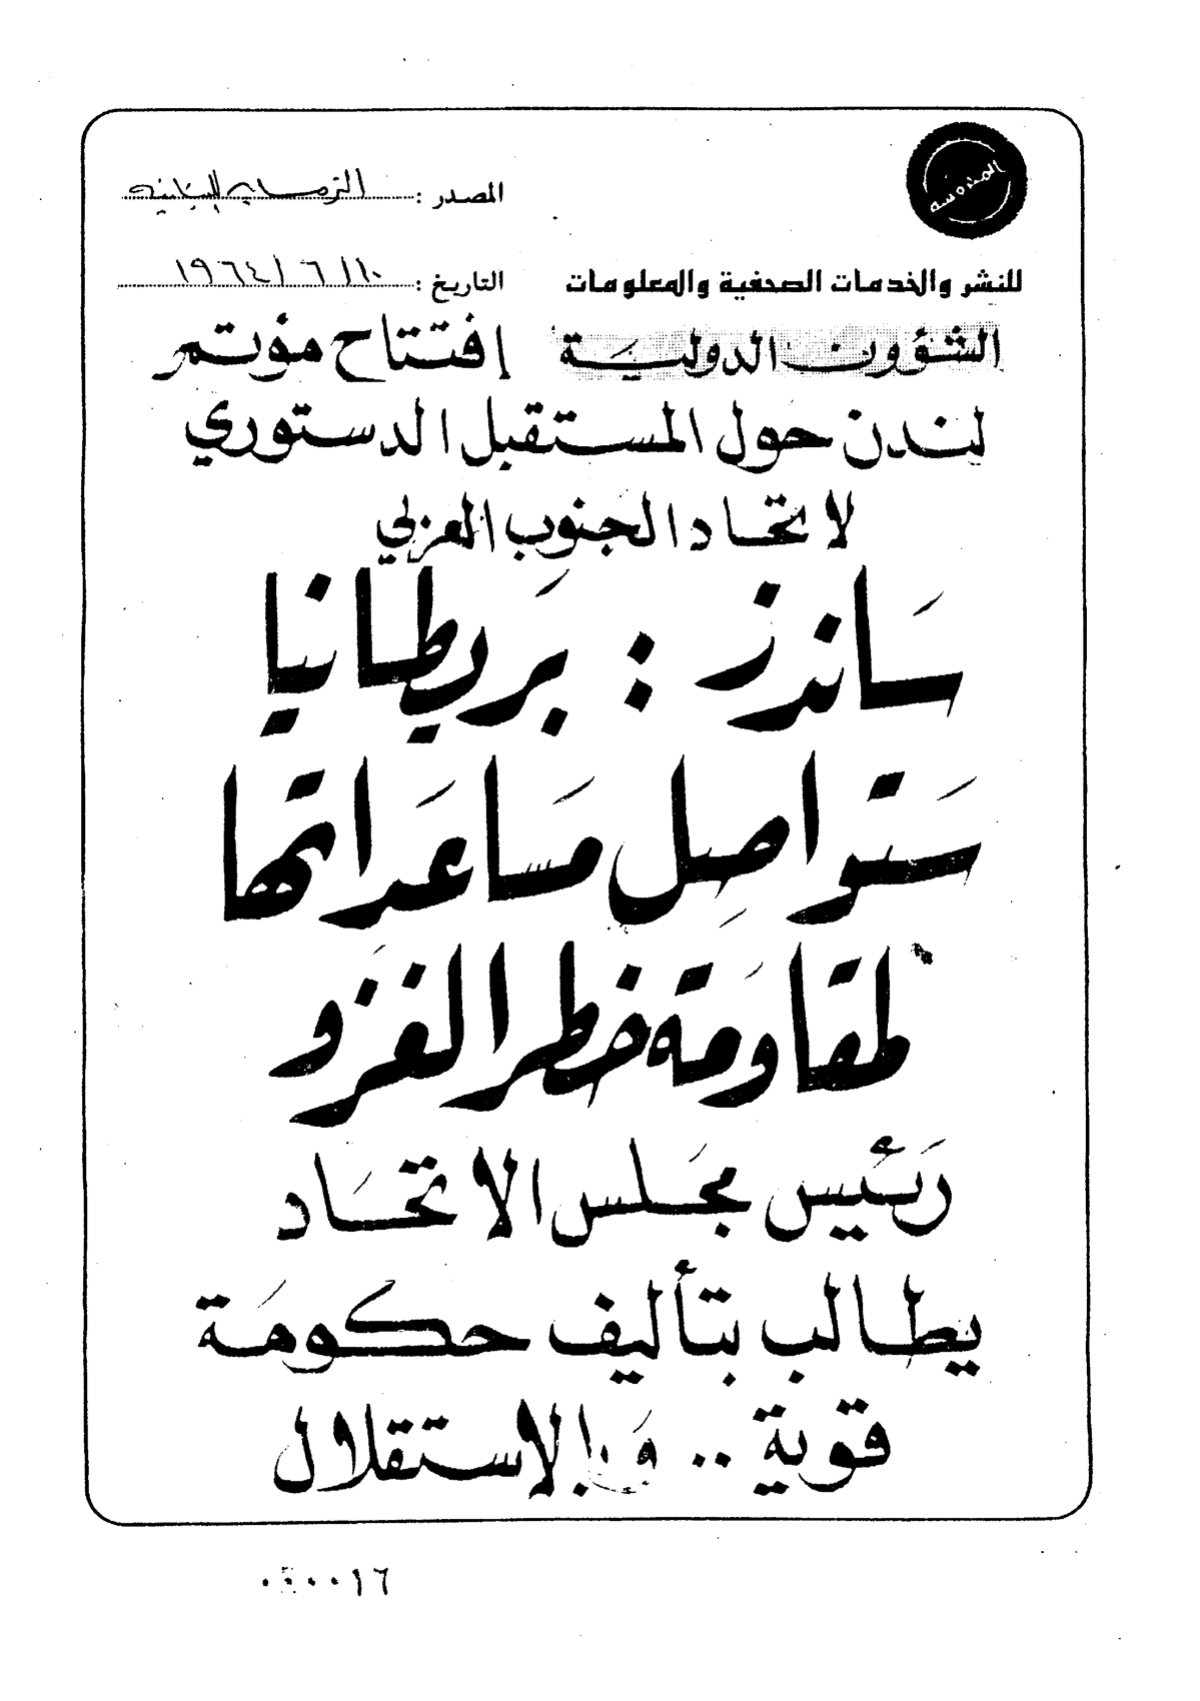 المحروسة
المصدر : الزمان اللبنانية
للنشر والخدمات الصحفية والمعلومات
التاريخ : ١٠/ ٦/ ١٩٦٤
الشؤون الدولية إفتتاح مؤتمر
لندن حول المستقبل الدستوري
لاتحاد الجنوب العربي
ساندز : بريطانيا
ستواصل مساعداتها
لمقاومة خطر الغزو
رئيس مجلس الاتحاد
يطالب بتأليف حكومة
قوية .. وبالإستقلال